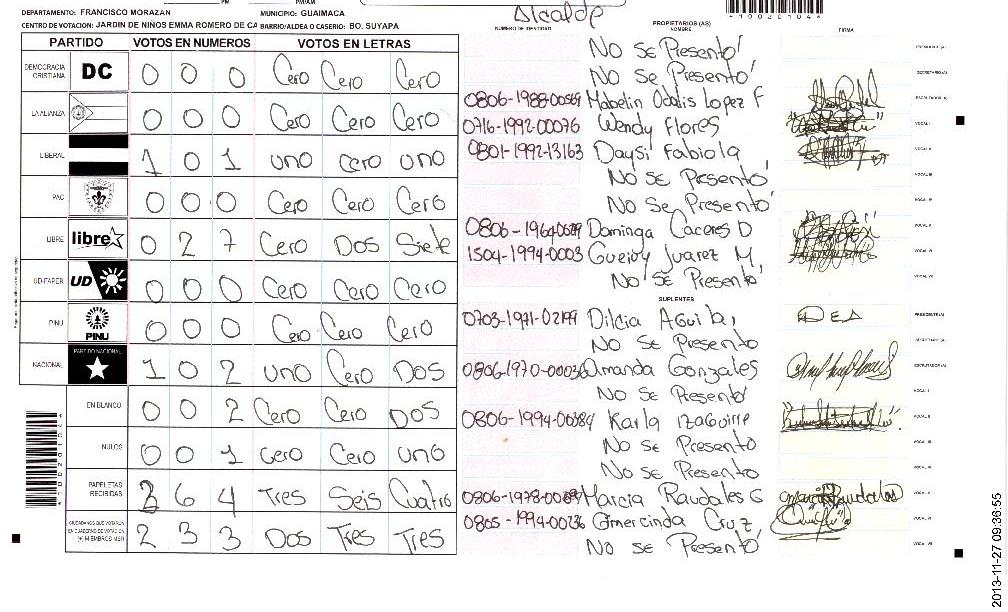 DEPARTAMENTO: FRANCISCO MORAZAN MUNICIPIO: GUAIMACA
CENTRO DE VOTACION: JARDIN DE NIÑOS EMMA ROMERO DE CA BARRIO/ALDEA O CASERIO: BO. SUYAPA
Alcalde
*100201044*
PARTIDO VOTOS EN NUMEROS VOTOS EN LETRAS
DEMOCRACIA CRISTIANA DC 0 0 0 Cero Cero Cero
LA ALIANZA 0 0 0 Cero Cero Cero
LIBERAL 1 0 1 uno cero uno
PAC 0 0 0 Cero Cero Cero
LIBRE libre 0 2 7 Cero Dos Siete
UD-FAPER UD 0 0 0 Cero Cero Cero
PINU PINU 0 0 0 Cero Cero Cero
NACIONAL PARTIDO NACIONAL 1 0 2 uno Cero Dos
EN BLANCO 0 0 2 Cero Cero Dos
NULOS 0 0 1 cero Cero uno
PAPELETAS RECIBIDAS 3 6 4 Tres Seis Cuatro
CIUDADANOS QUE VOTARON EN CUADERNO DE VOTACION (+) MIEMBROS MER 2 3 3 Dos Tres Tres
NUMERO DE IDENTIDAD PROPIETARIOS (AS) NOMBRE FIRMA
No Se Presentó PRESIDENTE (A)
No Se Presentó SECRETARIO (A)
0806-1988-00569 Mabelin Odalis Lopez F ESCRUTADOR (A)
0716-1992-00076 Wendy Flores VOCAL I
0801-1992-13163 Daysi Fabiola VOCAL II
No Se Presentó VOCAL III
No Se Presentó VOCAL IV
Dominga Caceres D VOCAL V
1504-1994-0003 Juarez M. VOCAL VI
No Se Presentó VOCAL VII
SUPLENTES
0703-1971-02199 Dilcia Aguila, PRESIDENTE (A)
No Se Presento SECRETARIO (A)
Amanda Gonzales ESCRUTADOR (A)
No Se Presentó VOCAL I
Karla Izaguirre VOCAL II
No Se Presento VOCAL III
No Se Presento VOCAL IV
Marcia Raudales G VOCAL V
0805-1994-00236 Cruz VOCAL VI
No Se Presentó VOCAL VII
*100201044*
2013-11-27 09:36:55